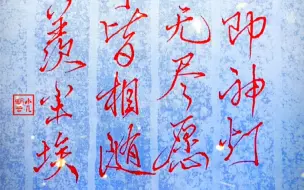 即神灯
无尽愿
皆相随
羡尘埃